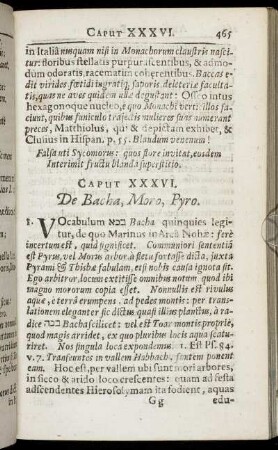 CAPUT XXXVI. 465
in Italiâ nusquam nisi in Monachorum claustris nasci-
tur: floribus stellatis purpurascentibus, & admo-
dum odoratis, racematim cohærentibus. Baccas e-
dit virides fœtidi ingratiq; saporis, deleteriæ faculta-
tis, quas ne aves quidem ullæ degustant: Osseo intus
hexagonoque nucleo, è quo Monachi verticillos fa-
ciunt, quibus funiculo trajectis mulieres suas numerant
preces, Matthiolus, qui & depictam exhibet, &
Clusius in Hispan. p. 55. Blandum venenum!
Falsa nti Sycomorus: quos flore invitat, eosdem
Interimit fructu blanda superstitio.
CAPUT XXXVI.
De Bacha, Moro, Pyro.
1. VOcabulum בכא Bacha quinquies legi-
tur, de quo Marinus in Arcâ Nohæ: ferè
incertum est, quid significet. Communiori sententiâ
est Pyrus, vel Morus arbor à flètu fortasse dicta, juxta
Pyrami & Thisbæ fabulam, etsi nobis causa ignota sit.
Ego arbitror, locum extitisse omnibus notum quod ibi
magno mororum copia esset. Nonnullis est rivulus
aquæ, è terrâ erumpens, ad pedes montis: per trans-
lationem eleganter sic dictus quasi illius planctus, à ra-
dice בכה Bacha scilicet: vel est Toar montis proprie,
quod magis arridet, ex quo pluribus locis aqua scatu-
riret. Nos singula loca expondemus. 1. Est Ps. 84.
v. 7. Transeuntes in vallem Habbach, fontem ponent
eam. Hoc est, per vallem ubi sunt mori arbores,
in sicco & arido loco crescentes: quam ad festa
adscendentes Hierosolymam ita fodient, aquas
G g edu-